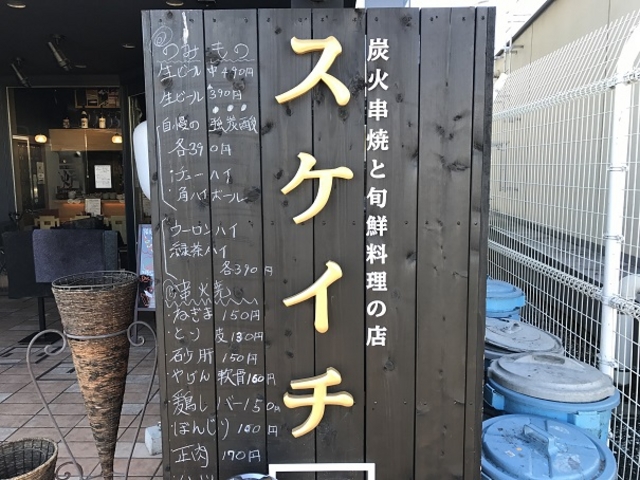 炭火串焼と旬鮮料理の店
スケイチ
@のみもの
生ビール 中 490円
生ビール 390円
自慢の 強炭酸
各390円
・チューハイ
・角ハイボール
ウーロンハイ
緑茶ハイ
各390円
串火焼
・ねぎま 150円
・とり皮 180円
・砂肝 150円
・やげん軟骨 160円
・鶏レバー 150円
・ぼんじり 160円
・正肉 170円